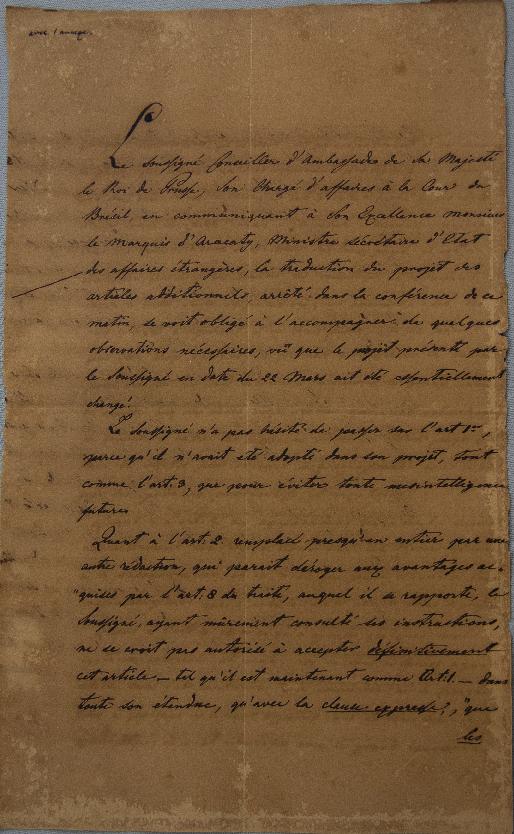 avec 1 annexe.
Le soussigné Conseiller d'Ambassade de Sa Majesté
le Roi de Prusse, Son Chargé d'affaires à la Cour du
Brésil, en communiquant à Son Excellence monsieur
le Marquis d'Aracaty, Ministre sécrétaire d'Etat
des affaires étrangères, la traduction du projet des
articles additionnels, arrêté dans la conférence de ce
matin, se voit obligé à l'accompagner de quelques
observations nécessaires, vû que le projèt présenté par
le Soussigné en date du 22 Mars ait été essentiellement
changé.
Le soussigné n'a pas hésité de passer sur l'art 1er,
parce qu'il n'avait été adopté dans son projet, tout
comme l'art. 3, que pour éviter toute mesintelligence
future.
Quant à l'art. 2 remplacé presqu'en entier par une
autre rédaction, qui parait déroger aux avantages ac-
"quises par l'art. 8 du traité, auquel il se rapporte, le
Soussigné, ayant mûrement consulté ses instructions,
ne se croit pas autorisé à accepter définitivement
cet article – tel qu'il est maintenant comme Art. 1. – dans
toute son étendue, qu'avec la clause expresse, "que
les